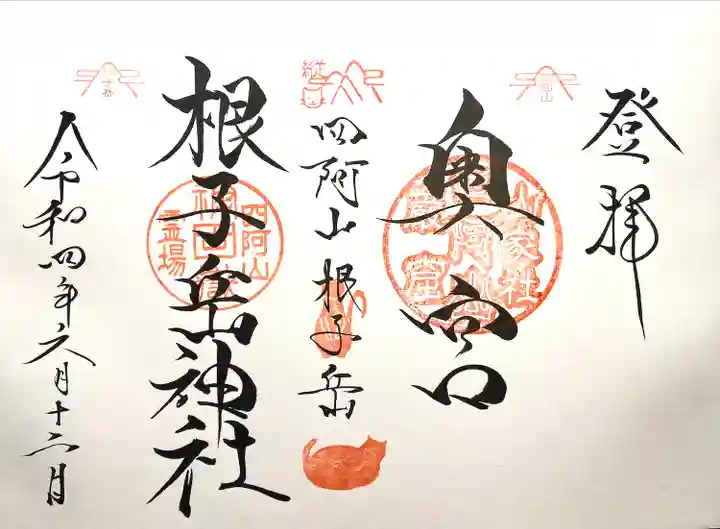 登拝
奥宮
山家社
縦走
四阿山 根子岳
根子岳神社
四阿山
霊場
令和四年六月十二日